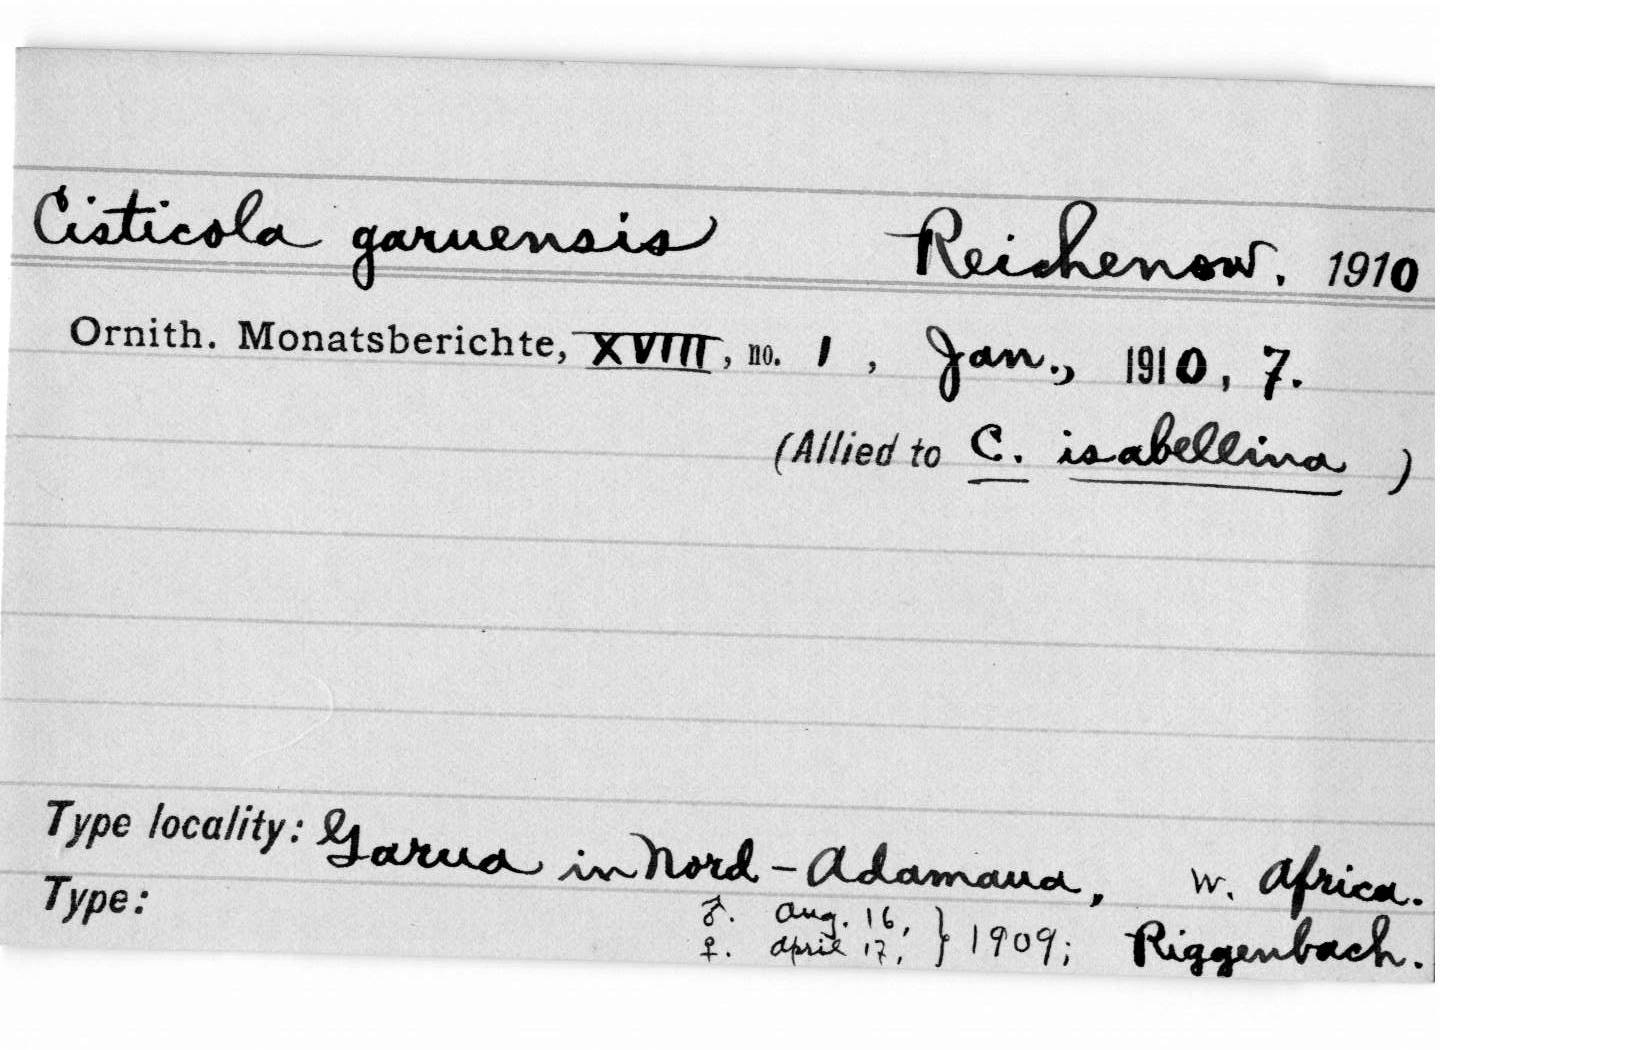 Cisticola garuensis Reichenow. 1910
Ornith. Monatsberichte, XVIII, no. 1, Jan., 1910, 7.
(Allied to C. isabellina)
Type locality: Garua in Nord-Adamaua, W. Africa.
Type: ♂. Aug. 16, } 1909; Riggenbach.
♀. April 17,